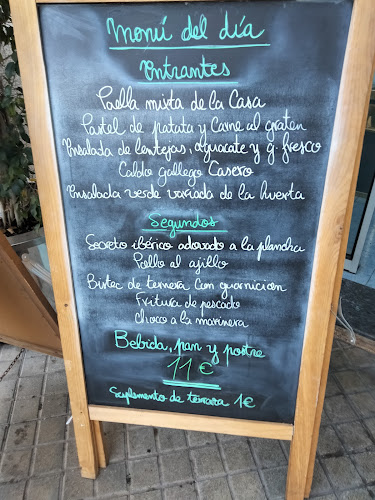 Menú del día
Entrantes
Paella mixta de la Casa
Pastel de patata y Carne al graten
Ensalada de lentejas, aguacate y q. fresco
Caldo gallego Casero
Ensalada verde variada de la huerta
Segundos
Secreto ibérico adovado a la plancha
Pollo al ajillo
Bistec de ternera Con guarnicion
Fritura de pescado
Choco a la marinera
Bebida, pan y postre
11 €
Suplemento de terraza 1€